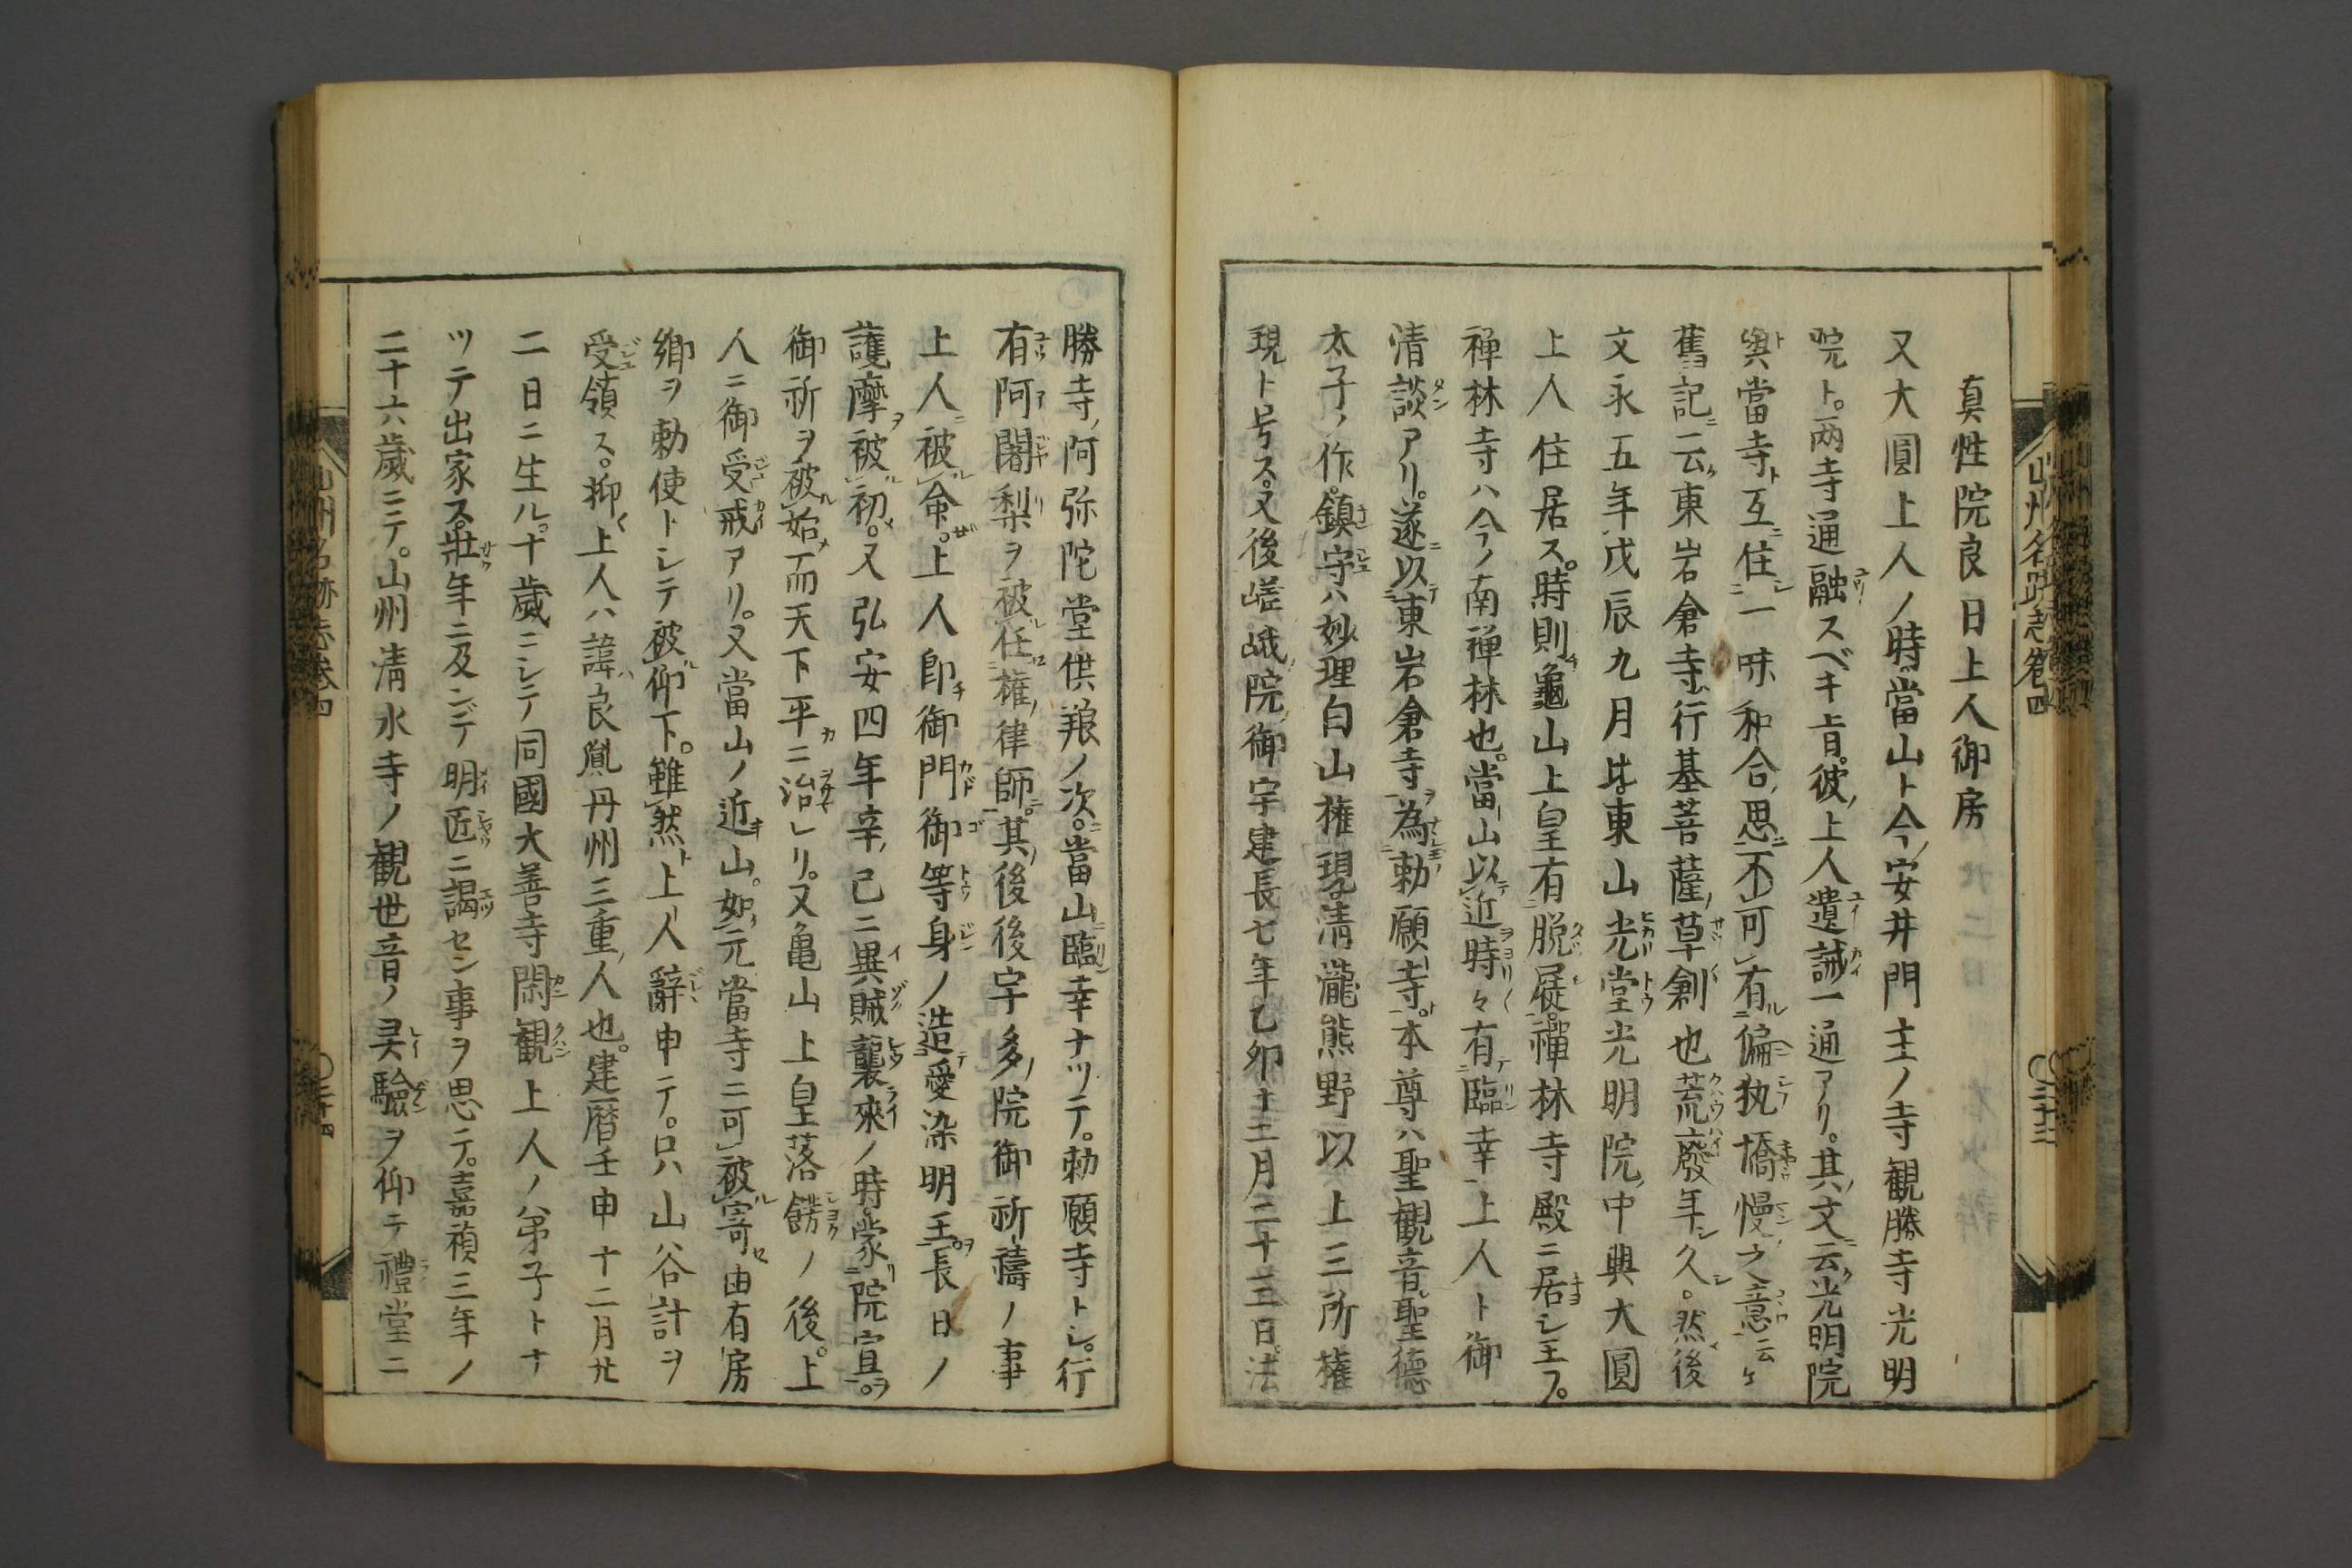 真性院良日上人御房
又大圓上人ノ時當山ト今ノ安井門主ノ寺観勝寺光明
院ト。両寺通融スベキ旨。彼ノ上人遺誡一通アリ。其ノ文ニ云ク光明院
與當寺互住一味和合ノ思不可有偏執憍慢之意云々
舊記ニ云ク東岩倉寺ハ行基菩薩ノ草創也荒廢年久。然後
文永五年戊辰九月ハ東山光堂光明院ノ中興大圓
上人住居ス。時則龜山上皇有脱屣禅林寺殿ニ居シ玉フ。
禅林寺ハ今ノ南禅林也。當山以近時々有臨幸上人ト御
清談アリ。遂以東岩倉寺為勅願寺。本尊ハ聖観音聖徳
太子ノ作。鎮守ハ妙理白山権現清瀧熊野以上三所権
現ト号ス。又後嵯峨院ノ御宇建長七年乙卯十二月二十三日。法
勝寺ノ阿弥陀堂供羪ノ次。當山臨幸ナツテ。勅願寺トシ。行
有阿闍梨ヲ被任権律師。其ノ後後宇多ノ院御祈禱ノ事
上人被命。上人即御門御等身ノ造愛染明王長日ノ
護摩被初。又弘安四年辛ノ己ニ異賊襲來ノ時蒙院宣。
御祈ヲ被始而天下平ニ治レリ。又亀山上皇落餝ノ後。上
人ニ御受戒アリ。又當山ノ近山。如元當寺ニ可被寄由有房
郷ヲ勅使トシテ被仰下。雖然上人辭申テ。只山谷計ヲ
受領ス。抑上人ハ諱ハ良胤丹州三重ノ人也。建暦壬申十二月廿
二日ニ生ル。十歳ニシテ同國大善寺閑観上人ノ弟子トナ
ツテ出家ス。壯年ニ及ンデ明匠ニ謁セン事ヲ思テ。嘉禎三年ノ
二十六歳ニテ。山州清水寺ノ観世音ノ灵驗ヲ仰テ禮堂ニ
山州名跡志巻四
〇三十三
山州名跡志巻四
〇三十四